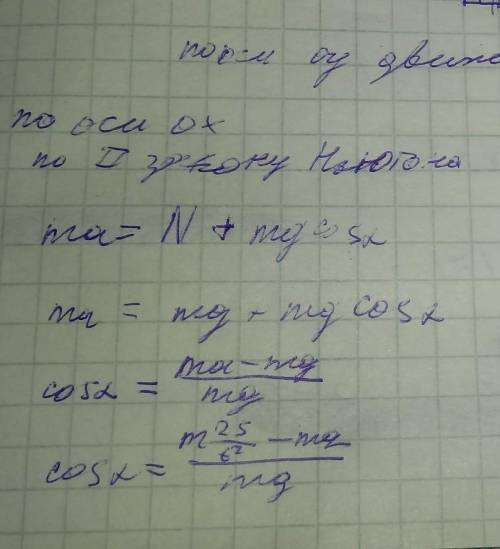 по оси oy движ
по оси ox
по II закону Ньютона
ma = N + mg cosα
ma = mg + mg cosα
cosα = \frac{ma - mg}{mg}
cosα = \frac{m\frac{2S}{t^2} - mg}{mg}